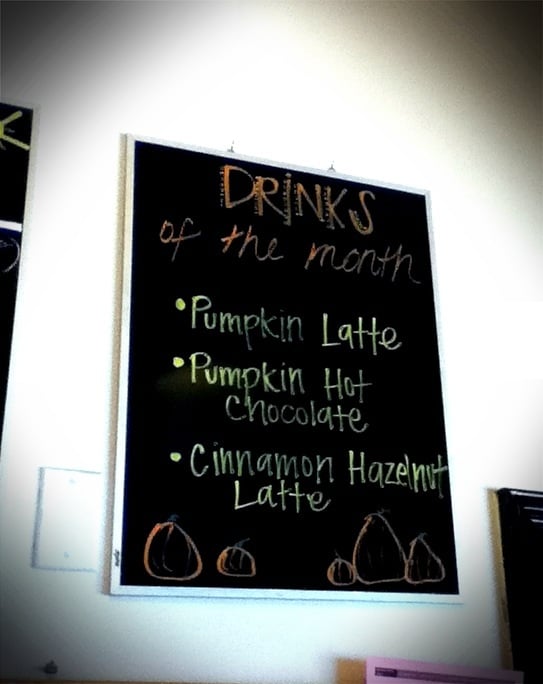 DRINKS
of the month
• Pumpkin Latte
• Pumpkin Hot
Chocolate
• Cinnamon Hazelnut
Latte